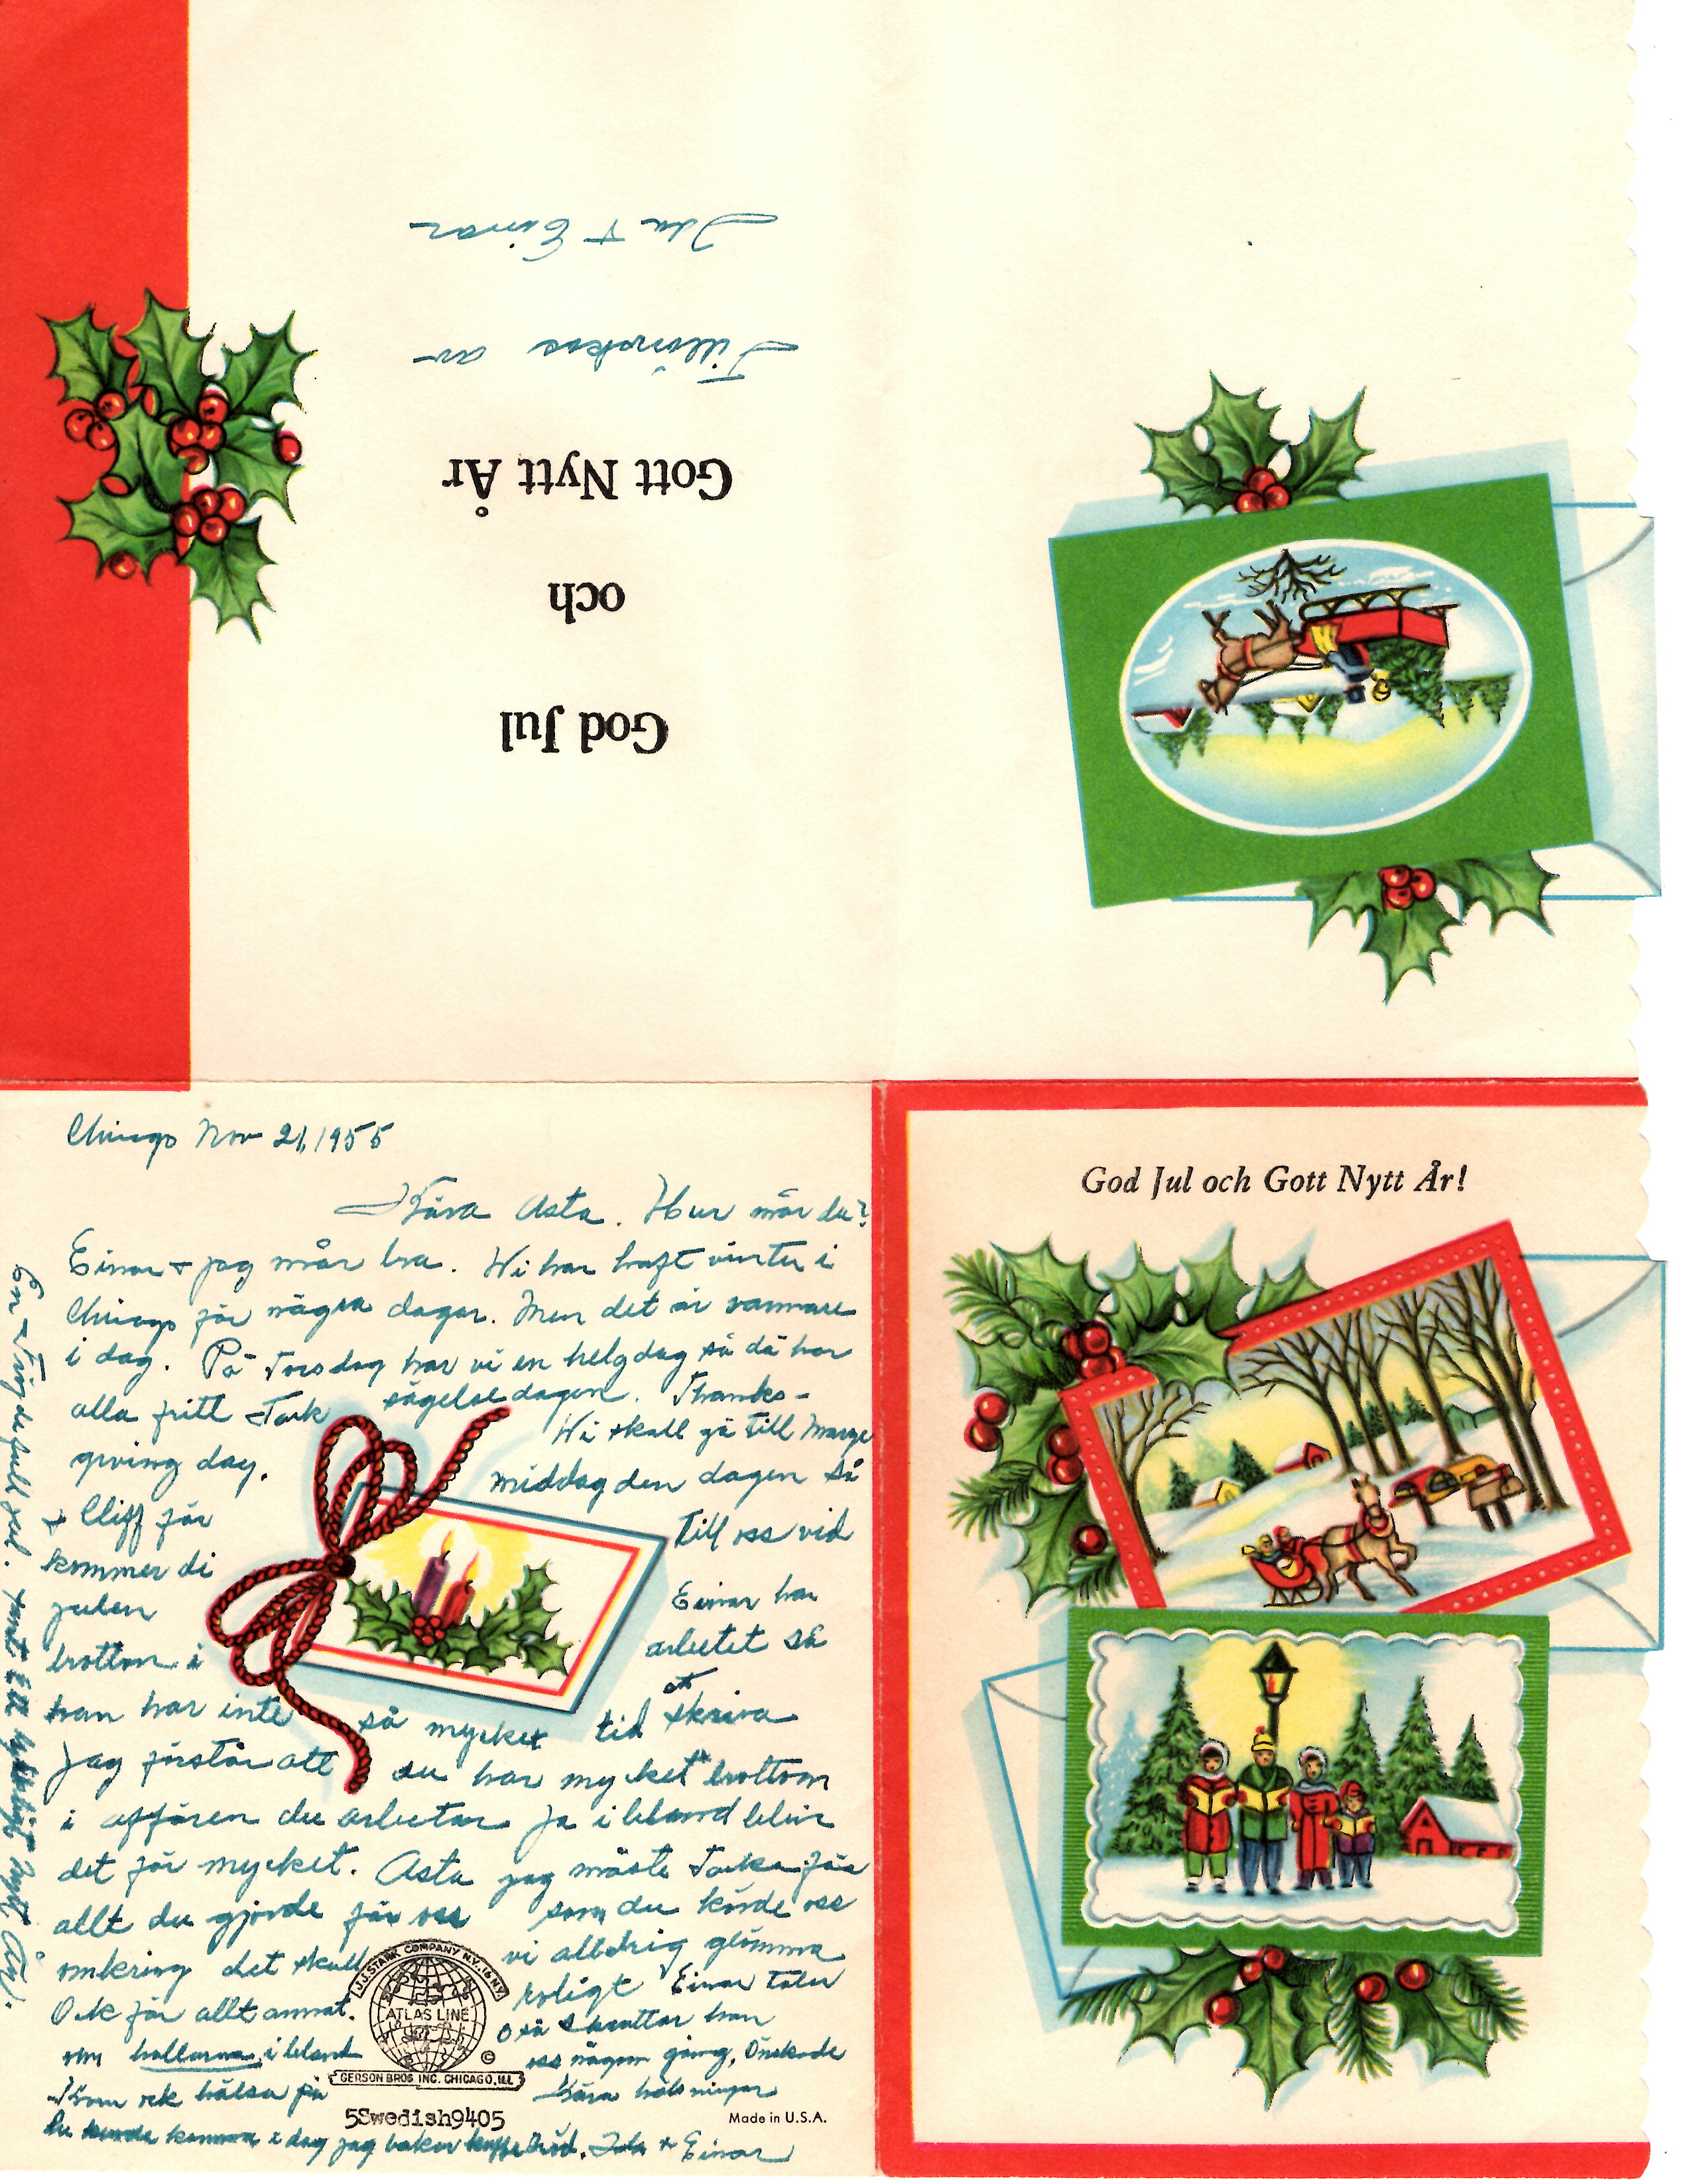 God Jul
och
Gott Nytt År
Tillönskas av
Ida + Einar
God Jul och Gott Nytt År!
Chicago Nov 21, 1955
Kära Asta. Hur mår du?
Einar + jag mår bra. Wi har haft vinter i
Chicago för några dagar. Men det är varmare
i dag. På Torsdag har vi en helgdag så då har
alla fritt Tack sägelsedagen. Thanks-
giving day. Wi skall gå till Marge
+ Cliff för middag den dagen så
kommer di till oss vid
julen Einar har
brottom i arbetet så
han har inte så mycket tid att skriva
Jag förstår att du har mycket brottom
i affären du arbetar ja ibland blir
det för mycket. Asta jag måste Tacka för
allt du gjorde för oss som du körde oss
omkring det skall vi alldrig glömma
Ock för allt annat. roligt Einar talar
om kallarna ibland så skrattar han
Kom ock hälsa på oss någon gång. Önskade
du kunde komma i dag jag baker kaffebröd.
Kära hälsningar
Ida + Einar
En Fröjdefull jul. samt Ett lyckligt Nytt År.
J.J. STARK COMPANY N.Y. 16 N.Y.
ATLAS LINE
©
GERSON BROS INC. CHICAGO, ILL
5Swedish9405
Made in U.S.A.